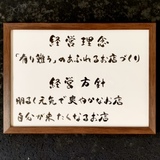 経営理念
「有り難う」のあふれるお店づくり
経営方針
明るく元気で爽やかなお店
自分が来たくなるお店